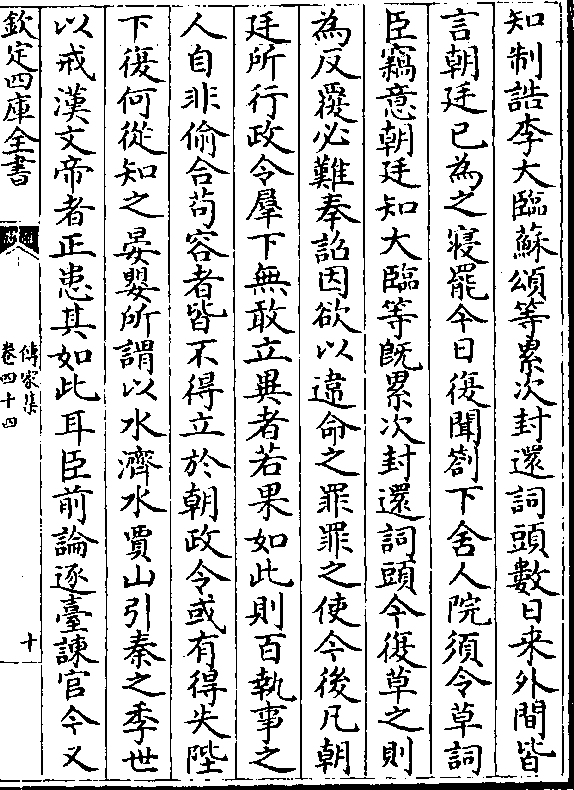 知制誥李大臨蘇頌等累次封還詞頭數日来外間皆
言朝廷已為之寢罷今日復聞劄下舍人院須令草詞
臣竊意朝廷知大臨等既累次封還詞頭今復草之則
為反覆必難奉詔因欲以違命之罪罪之使今後凡朝
廷所行政令羣下無敢立異者若果如此則百執事之
人自非偷合苟容者皆不得立於朝政令或有得失陛
下復何從知之晏嬰所謂以水濟水賈山引秦之季世
以戒漢文帝者正患其如此耳臣前論逐臺諫官今又
欽定四庫全書
傳家集
卷四十四
十